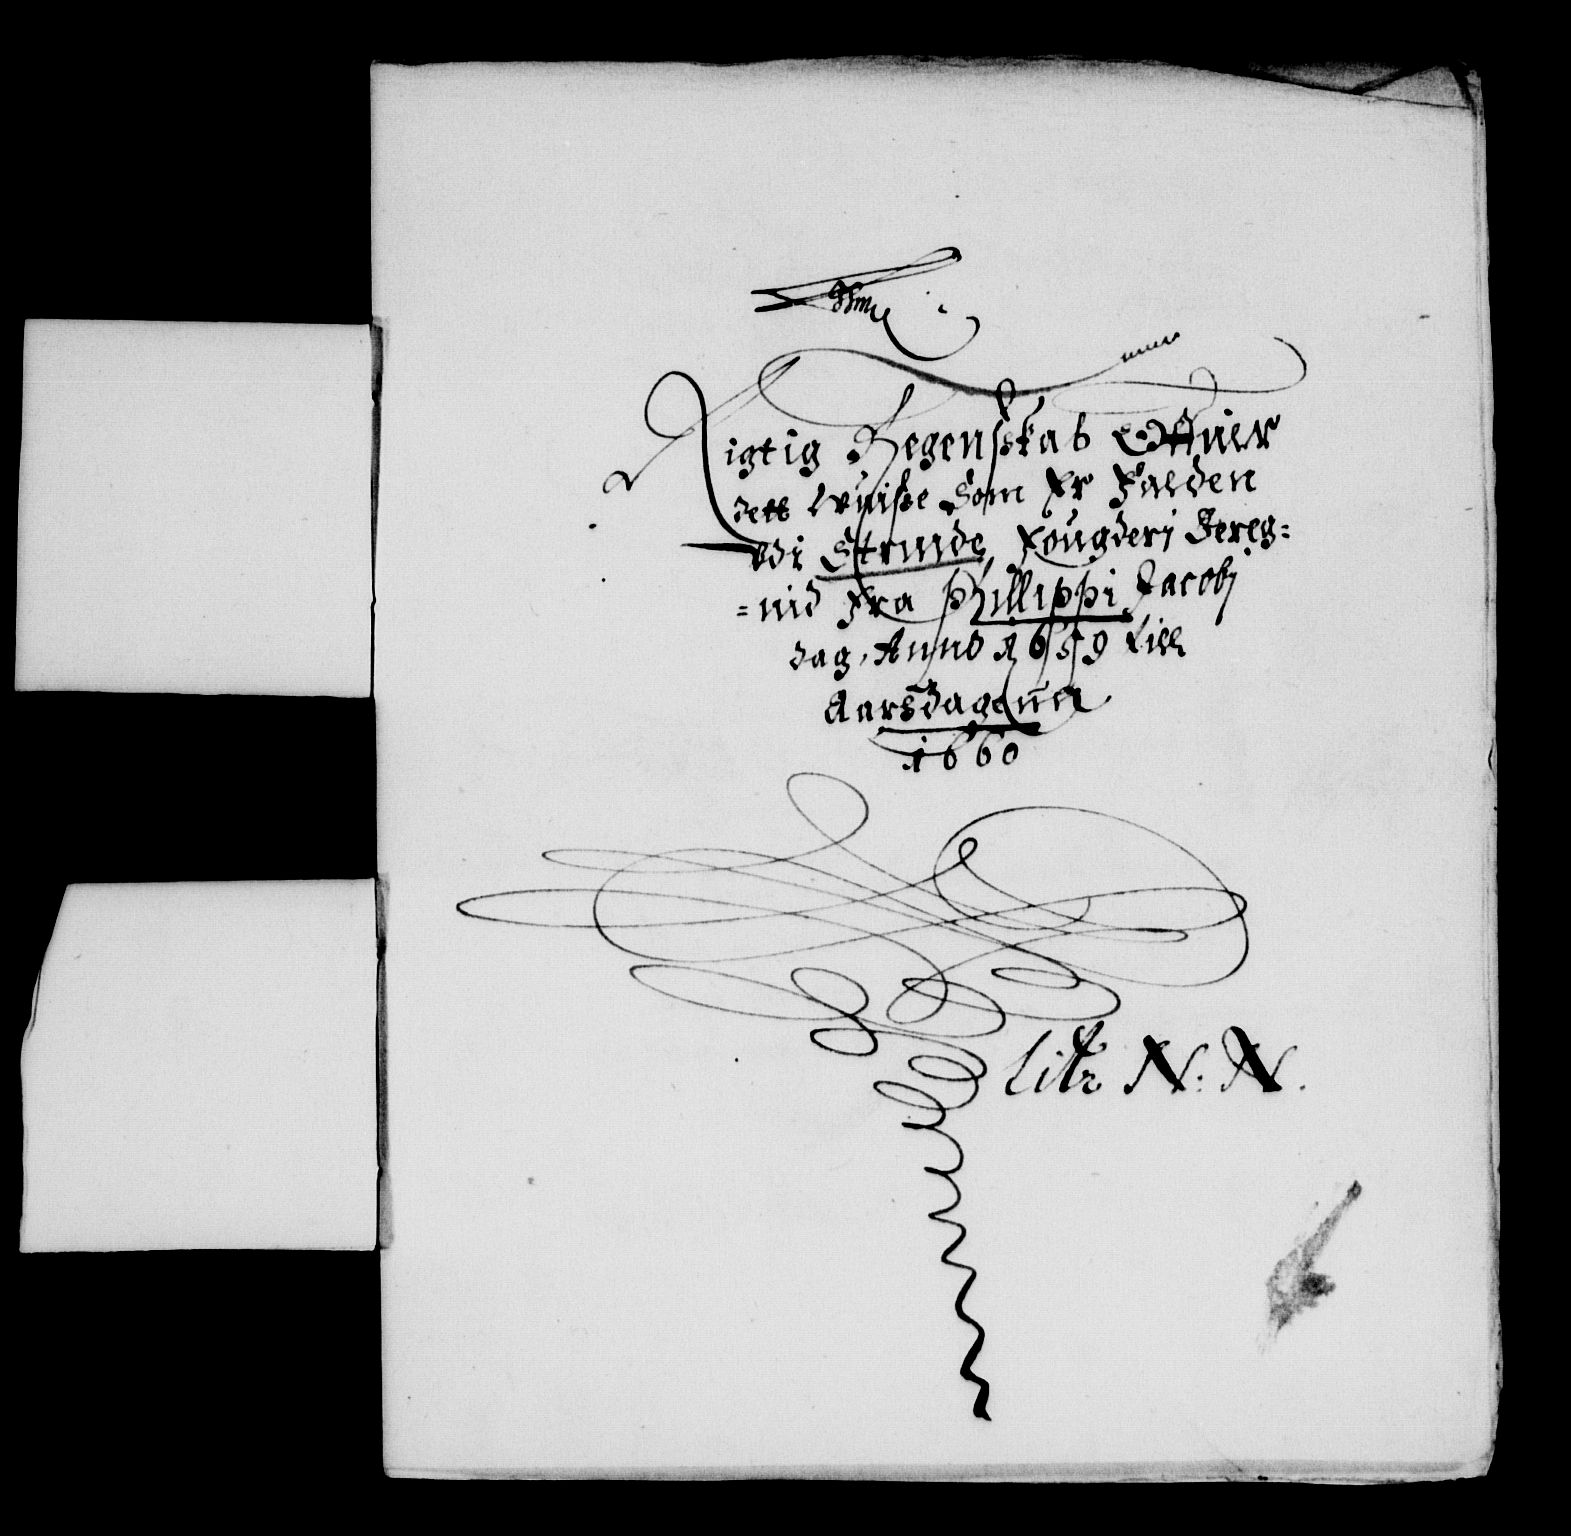 Rigtig Regensskab Offuer
dett Wuisse Som Er Falden
Vdi Strinde Fougderj Bereg=
=nid Fra Phillippi Jacobj
dag, Anno 1659 till
Aarsdagenn
1660
Litr N: N.